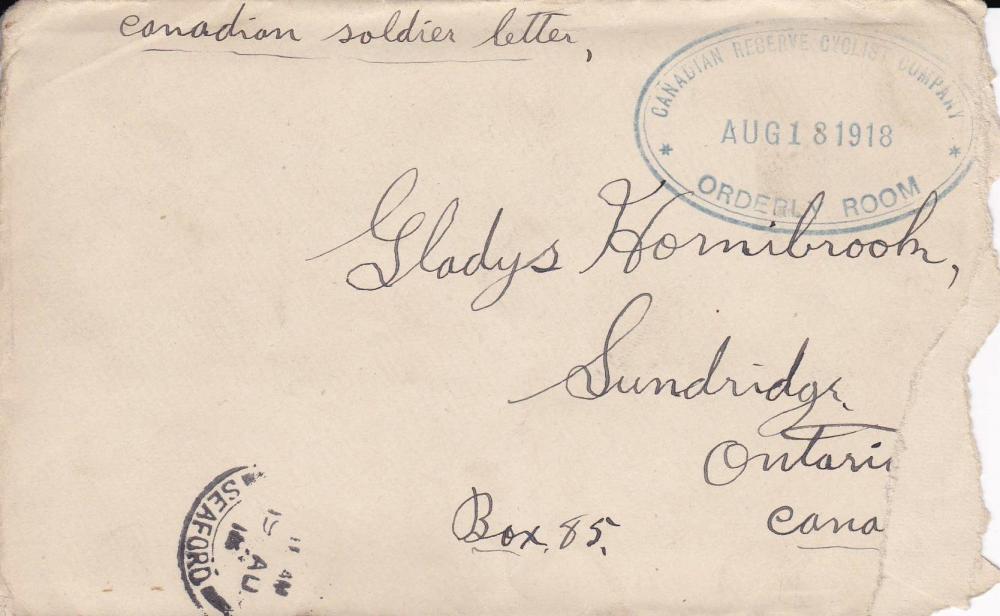 canadian soldier letter,
CANADIAN RESERVE CYCLIST COMPANY
AUG 18 1918
* ORDERLY ROOM *
Gladys Hornibrook,
Sundridge.
Ontari
Box. 85.
cana
SEAFORD
AU
18